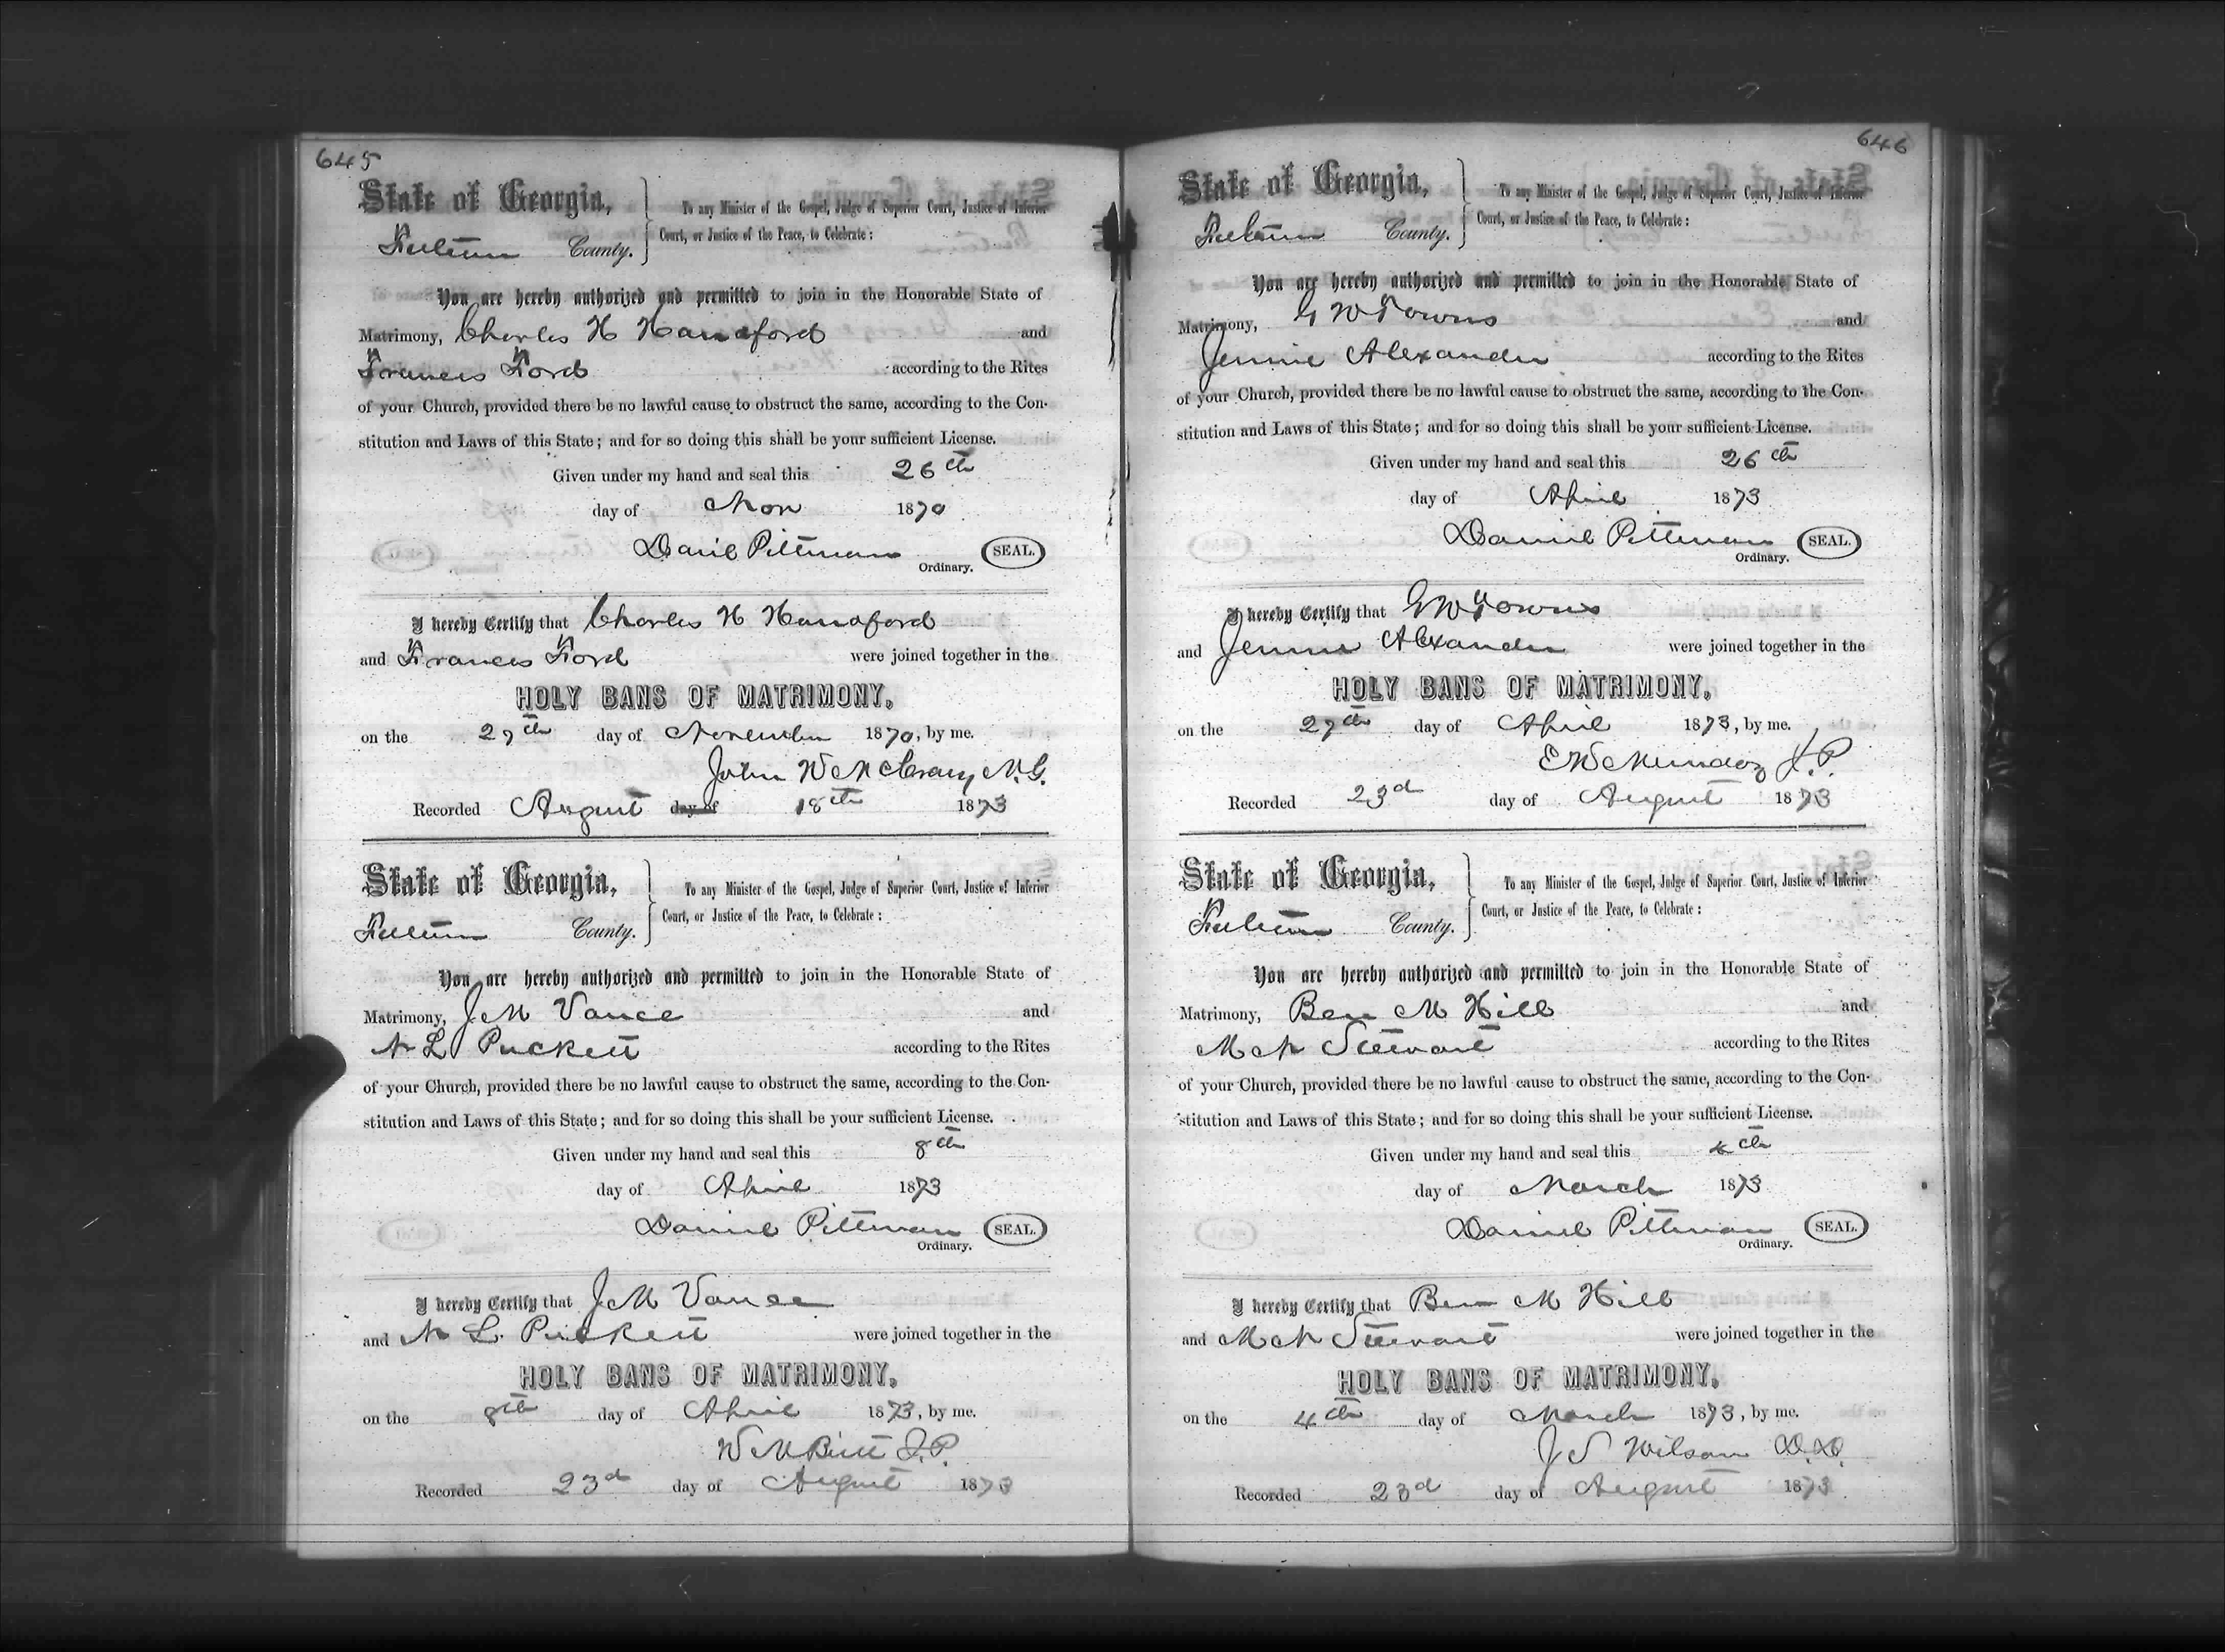 645
State of Georgia,
Fulton County.
To any Minister of the Gospel, Judge of Superior Court, Justice of Inferior
Court, or Justice of the Peace, to Celebrate:
You are hereby authorized and permitted to join in the Honorable State of
Matrimony, Charles H Handford and
Frances Ford according to the Rites
of your Church, provided there be no lawful cause to obstruct the same, according to the Con-
stitution and Laws of this State; and for so doing this shall be your sufficient License.
Given under my hand and seal this 26th
day of Nov 1870
Daniel Pittman SEAL.
Ordinary.
I hereby Certify that Charles H Handford
and Frances Ford were joined together in the
HOLY BANS OF MATRIMONY,
on the 27th day of November 1870, by me.
John W McCrary M.G.
Recorded August day of 18th 1873
State of Georgia,
Fulton County.
To any Minister of the Gospel, Judge of Superior Court, Justice of Inferior
Court, or Justice of the Peace, to Celebrate:
You are hereby authorized and permitted to join in the Honorable State of
Matrimony, J M Vance and
N L Puckett according to the Rites
of your Church, provided there be no lawful cause to obstruct the same, according to the Con-
stitution and Laws of this State; and for so doing this shall be your sufficient License.
Given under my hand and seal this 8th
day of April 1873
Daniel Pittman SEAL.
Ordinary.
I hereby Certify that J M Vance
and N L. Puckett were joined together in the
HOLY BANS OF MATRIMONY,
on the 8th day of April 1873, by me.
W M Butt J.P.
Recorded 23d day of August 1873
646
State of Georgia,
Fulton County.
To any Minister of the Gospel, Judge of Superior Court, Justice of Inferior
Court, or Justice of the Peace, to Celebrate:
You are hereby authorized and permitted to join in the Honorable State of
Matrimony, G W Towns and
Jennie Alexander according to the Rites
of your Church, provided there be no lawful cause to obstruct the same, according to the Con-
stitution and Laws of this State; and for so doing this shall be your sufficient License.
Given under my hand and seal this 26th
day of April 1873
Daniel Pittman SEAL.
Ordinary.
I hereby Certify that G W Towns
and Jennie Alexander were joined together in the
HOLY BANS OF MATRIMONY,
on the 27th day of April 1873, by me.
J.P.
Recorded 23d day of August 1873
State of Georgia,
Fulton County.
To any Minister of the Gospel, Judge of Superior Court, Justice of Inferior
Court, or Justice of the Peace, to Celebrate:
You are hereby authorized and permitted to join in the Honorable State of
Matrimony, Ben M Hill and
M N Stewart according to the Rites
of your Church, provided there be no lawful cause to obstruct the same, according to the Con-
stitution and Laws of this State; and for so doing this shall be your sufficient License.
Given under my hand and seal this 4th
day of March 1873
Daniel Pittman SEAL.
Ordinary.
I hereby Certify that Ben M Hill
and M N Stewart were joined together in the
HOLY BANS OF MATRIMONY,
on the 4th day of March 1873, by me.
J S Wilson D.D.
Recorded 23d day of August 1873